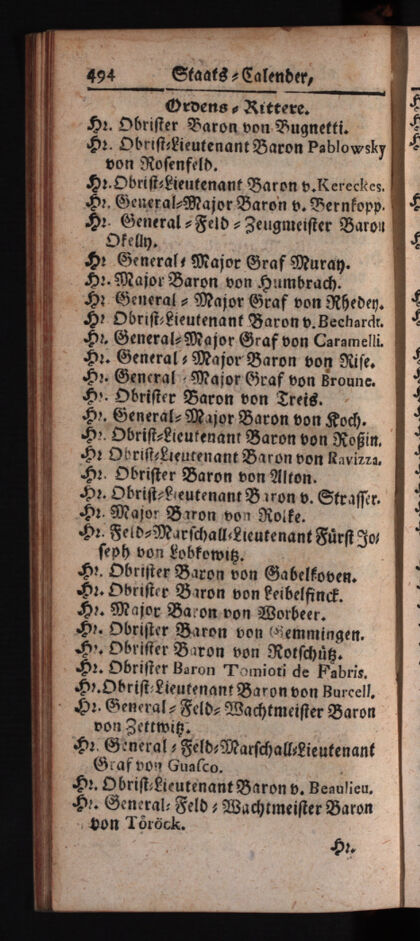 494 Staats-Calender,
Ordens-Rittere.
Hr. Obrister Baron von Bugnetti.
Hr. Obrist-Lieutenant Baron Pablowsky
von Rosenfeld.
Hr. Obrist-Lieutenant Baron v. Kereckes.
Hr. General-Major Baron v. Bernkopp.
Hr. General-Feld-Zeugmeister Baron
Okelly.
Hr General-Major Graf Muray.
Hr. Major Baron von Humbrach.
Hr General-Major Graf von Rhedey.
Hr Obrist-Lieutenant Baron v. Bechardt.
Hr. General-Major Graf von Caramelli.
Hr. General-Major Baron von Rise.
Hr. General-Major Graf von Broune.
Hr. Obrister Baron von Treis.
Hr. General-Major Baron von Koch.
Hr. Obrist-Lieutenant Baron von Roßin.
Hr Obrist-Lieutenant Baron von Ravizza.
Hr. Obrister Baron von Alton.
Hr. Obrist-Lieutenant Baron v. Strasser.
Hr. Major Baron von Rolke.
Hr. Feld-Marschall-Lieutenant Fürst Jo-
seph von Lobkowitz.
Hr. Obrister Baron von Gabelkoven.
Hr. Obrister Baron von Leibelfinck.
Hr. Major Baron von Vorbeer.
Hr. Obrister Baron von Gemmingen.
Hr. Obrister Baron von Rotschütz.
Hr. Obrister Baron Tomioti de Fabris.
Hr. Obrist-Lieutenant Baron von Burcell.
Hr. General-Feld-Wachtmeister Baron
von Zettwitz.
Hr. General-Feld-Marschall-Lieutenant
Graf von Guasco.
Hr. Obrist-Lieutenant Baron v. Beaulieu.
Hr. General-Feld-Wachtmeister Baron
von Töröck.
Hr.